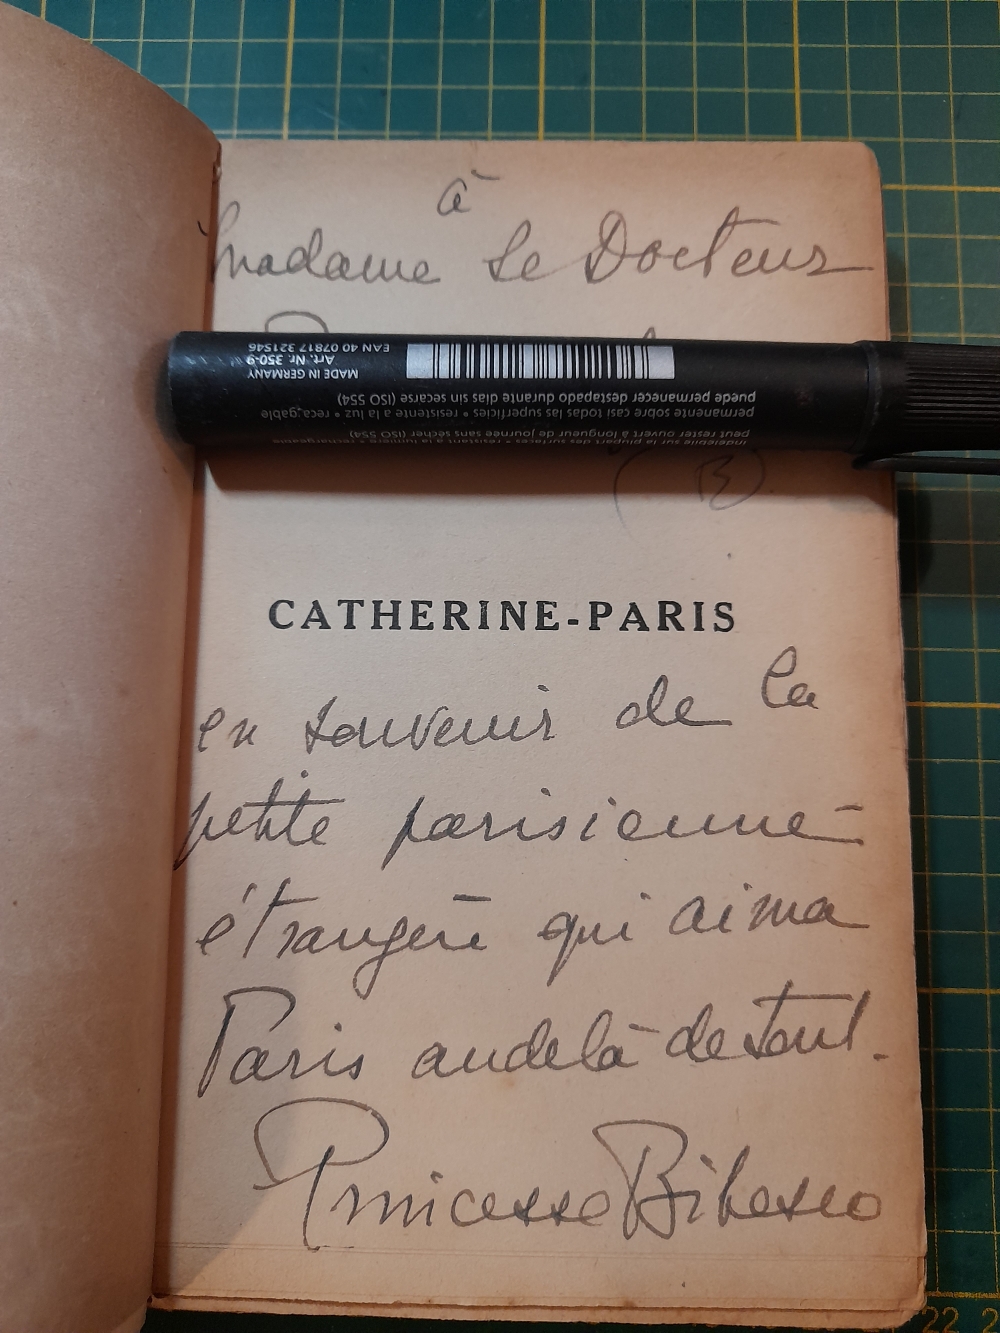 à
Madame Le Docteur
EAN 40 07817 321546
Art. Nr. 350-9
MADE IN GERMANY
puede permanecer destapado durante días sin secarse (ISO 554)
permanente sobre casi todas las superficies • resistente a la luz • recargable
peut rester ouvert à longueur de journée sans sécher (ISO 554)
indélébile sur la plupart des surfaces • résistant à la lumière • rechargeable
B
CATHERINE-PARIS
en souvenir de la
petite parisienne
étrangère qui aima
Paris audelà de tout.
Princesse Bibesco
22 2